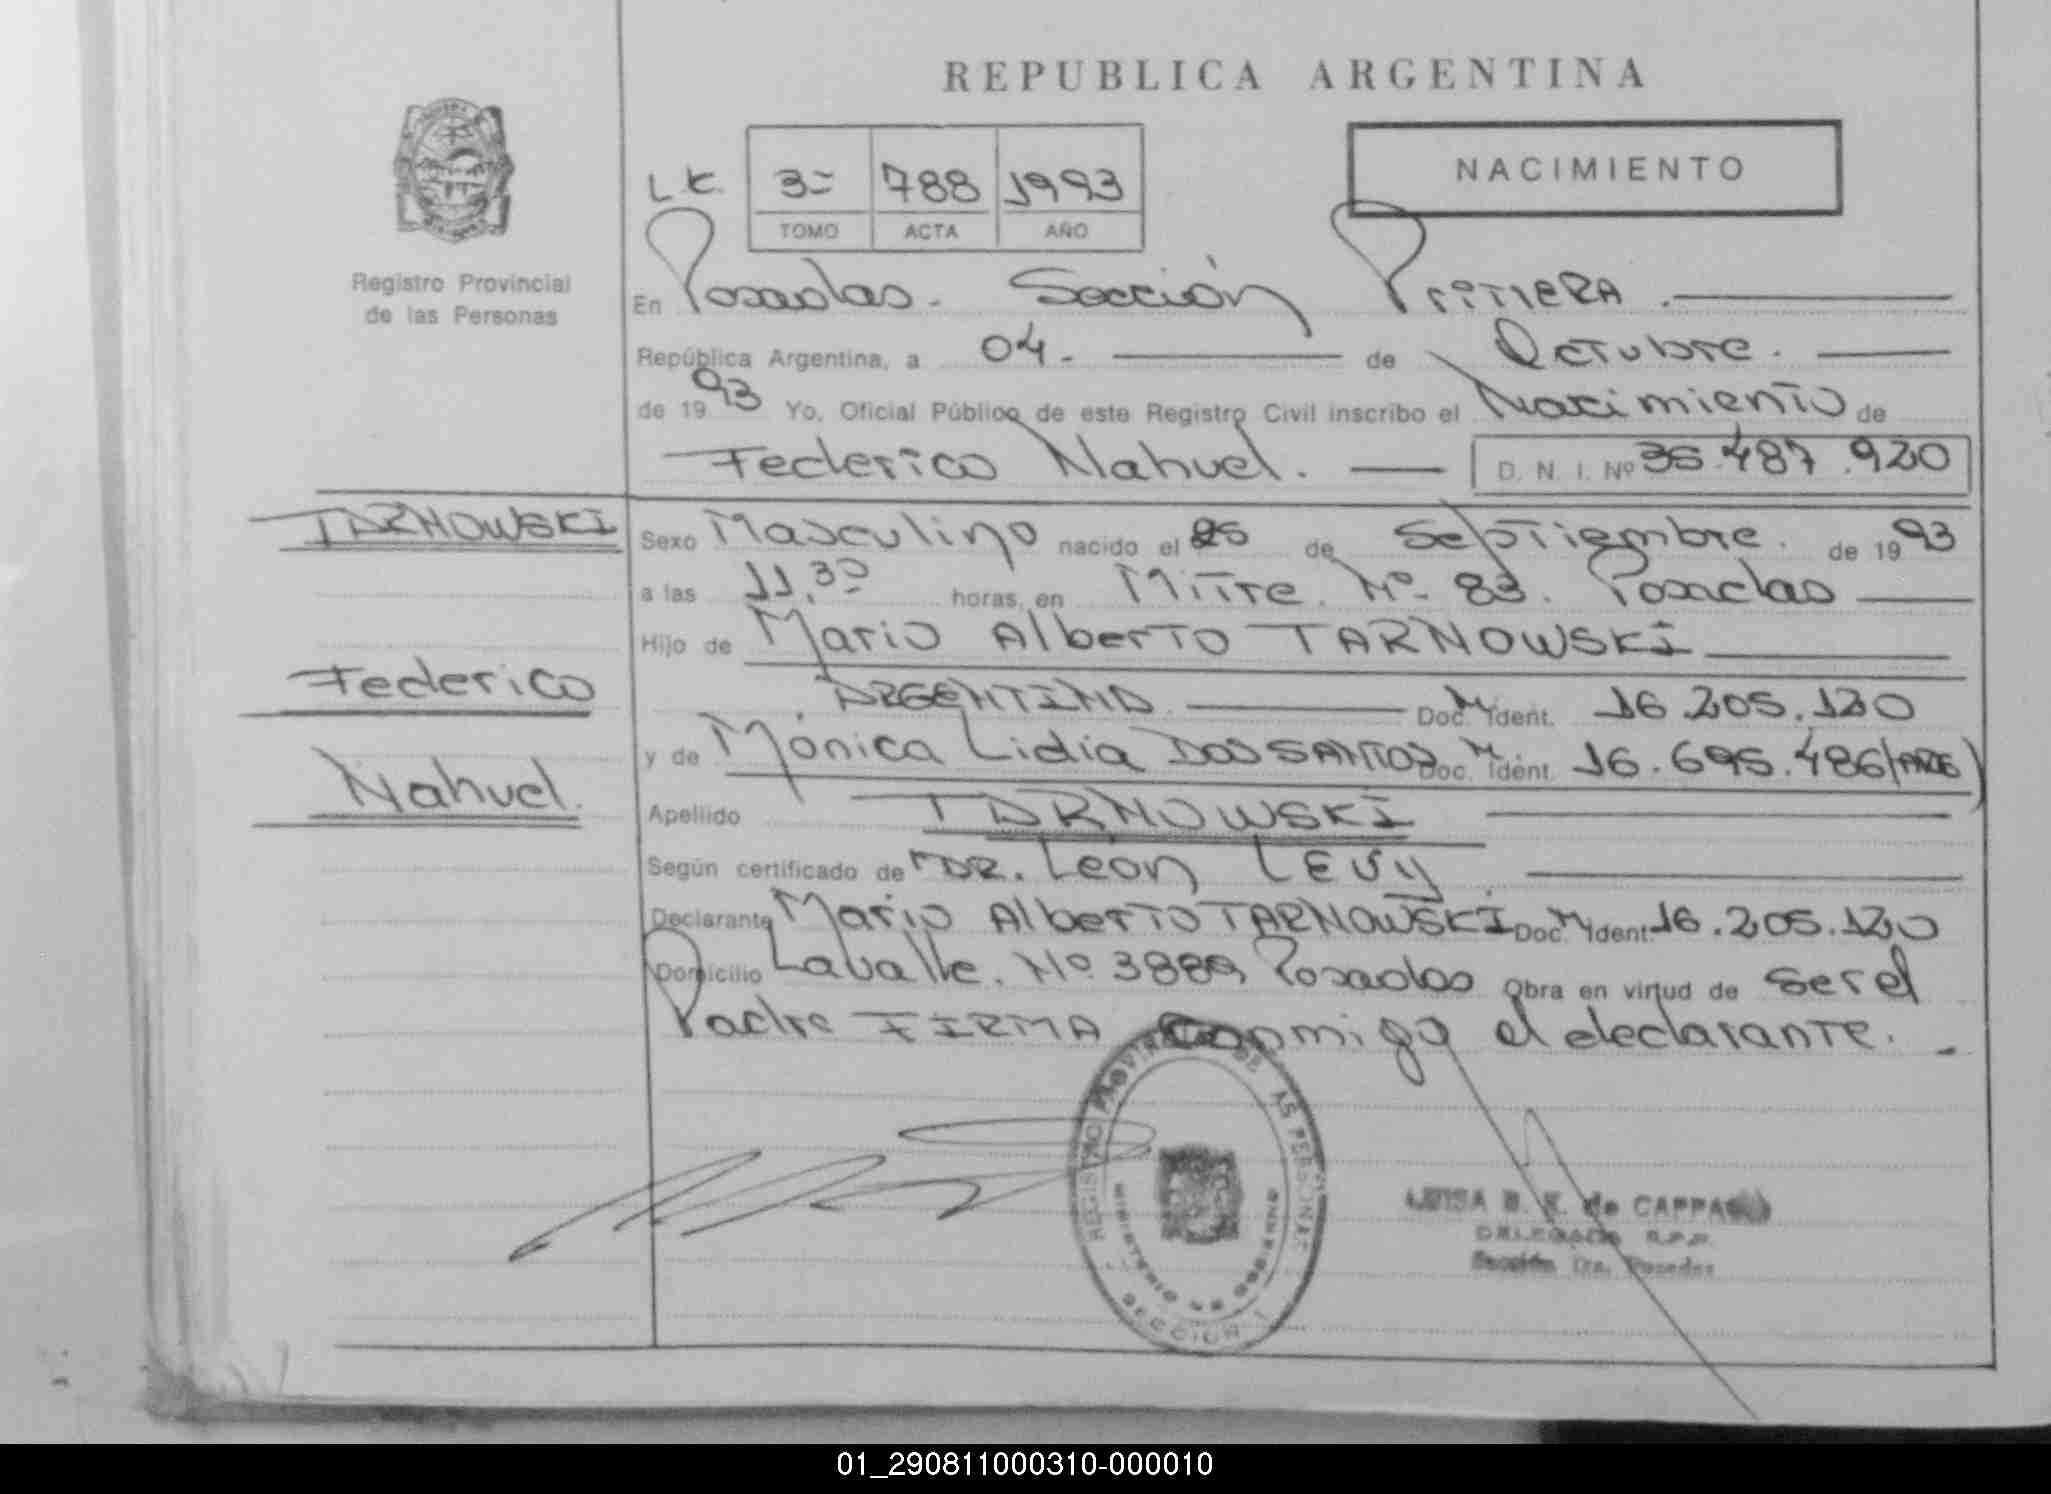 REPUBLICA ARGENTINA
NACIMIENTO
3= 788 1993
TOMO ACTA AÑO
Registro Provincial
de las Personas
En Posadas. Sección Primera.
República Argentina, a 04- de Octubre.
de 1993 Yo, Oficial Público de este Registro Civil inscribo el Nacimiento de
Federico Nahuel. D. N. I. Nº 36.487.920
TARNOWSKI
Federico
Nahuel.
Sexo Masculino nacido el de Septiembre. de 1993
a las 11,30 horas, en Mitre. Nº 83. Posadas
Hijo de Mario Alberto TARNOWSKI
ARGENTINO Doc. M Ident. 16.205.120
y de Mónica Lidia DOS SANTOS Doc. M Ident. 16.695.486
Apellido TARNOWSKI
Según certificado de DR. León LEVY
Declarante Mario Alberto TARNOWSKI Doc. M Ident. 16.205.120
Domicilio Lavalle. Nº 3889 Posadas Obra en virtud de ser el
Padre FIRMA Conmigo el declarante.
REGISTRO PROVINCIAL DE LAS PERSONAS
MINISTERIO DE GOBIERNO
SECCION 1
LUISA B. K. de
DELEGADA R.P.P.
Sección 1ra. Posadas
01_290811000310-000010